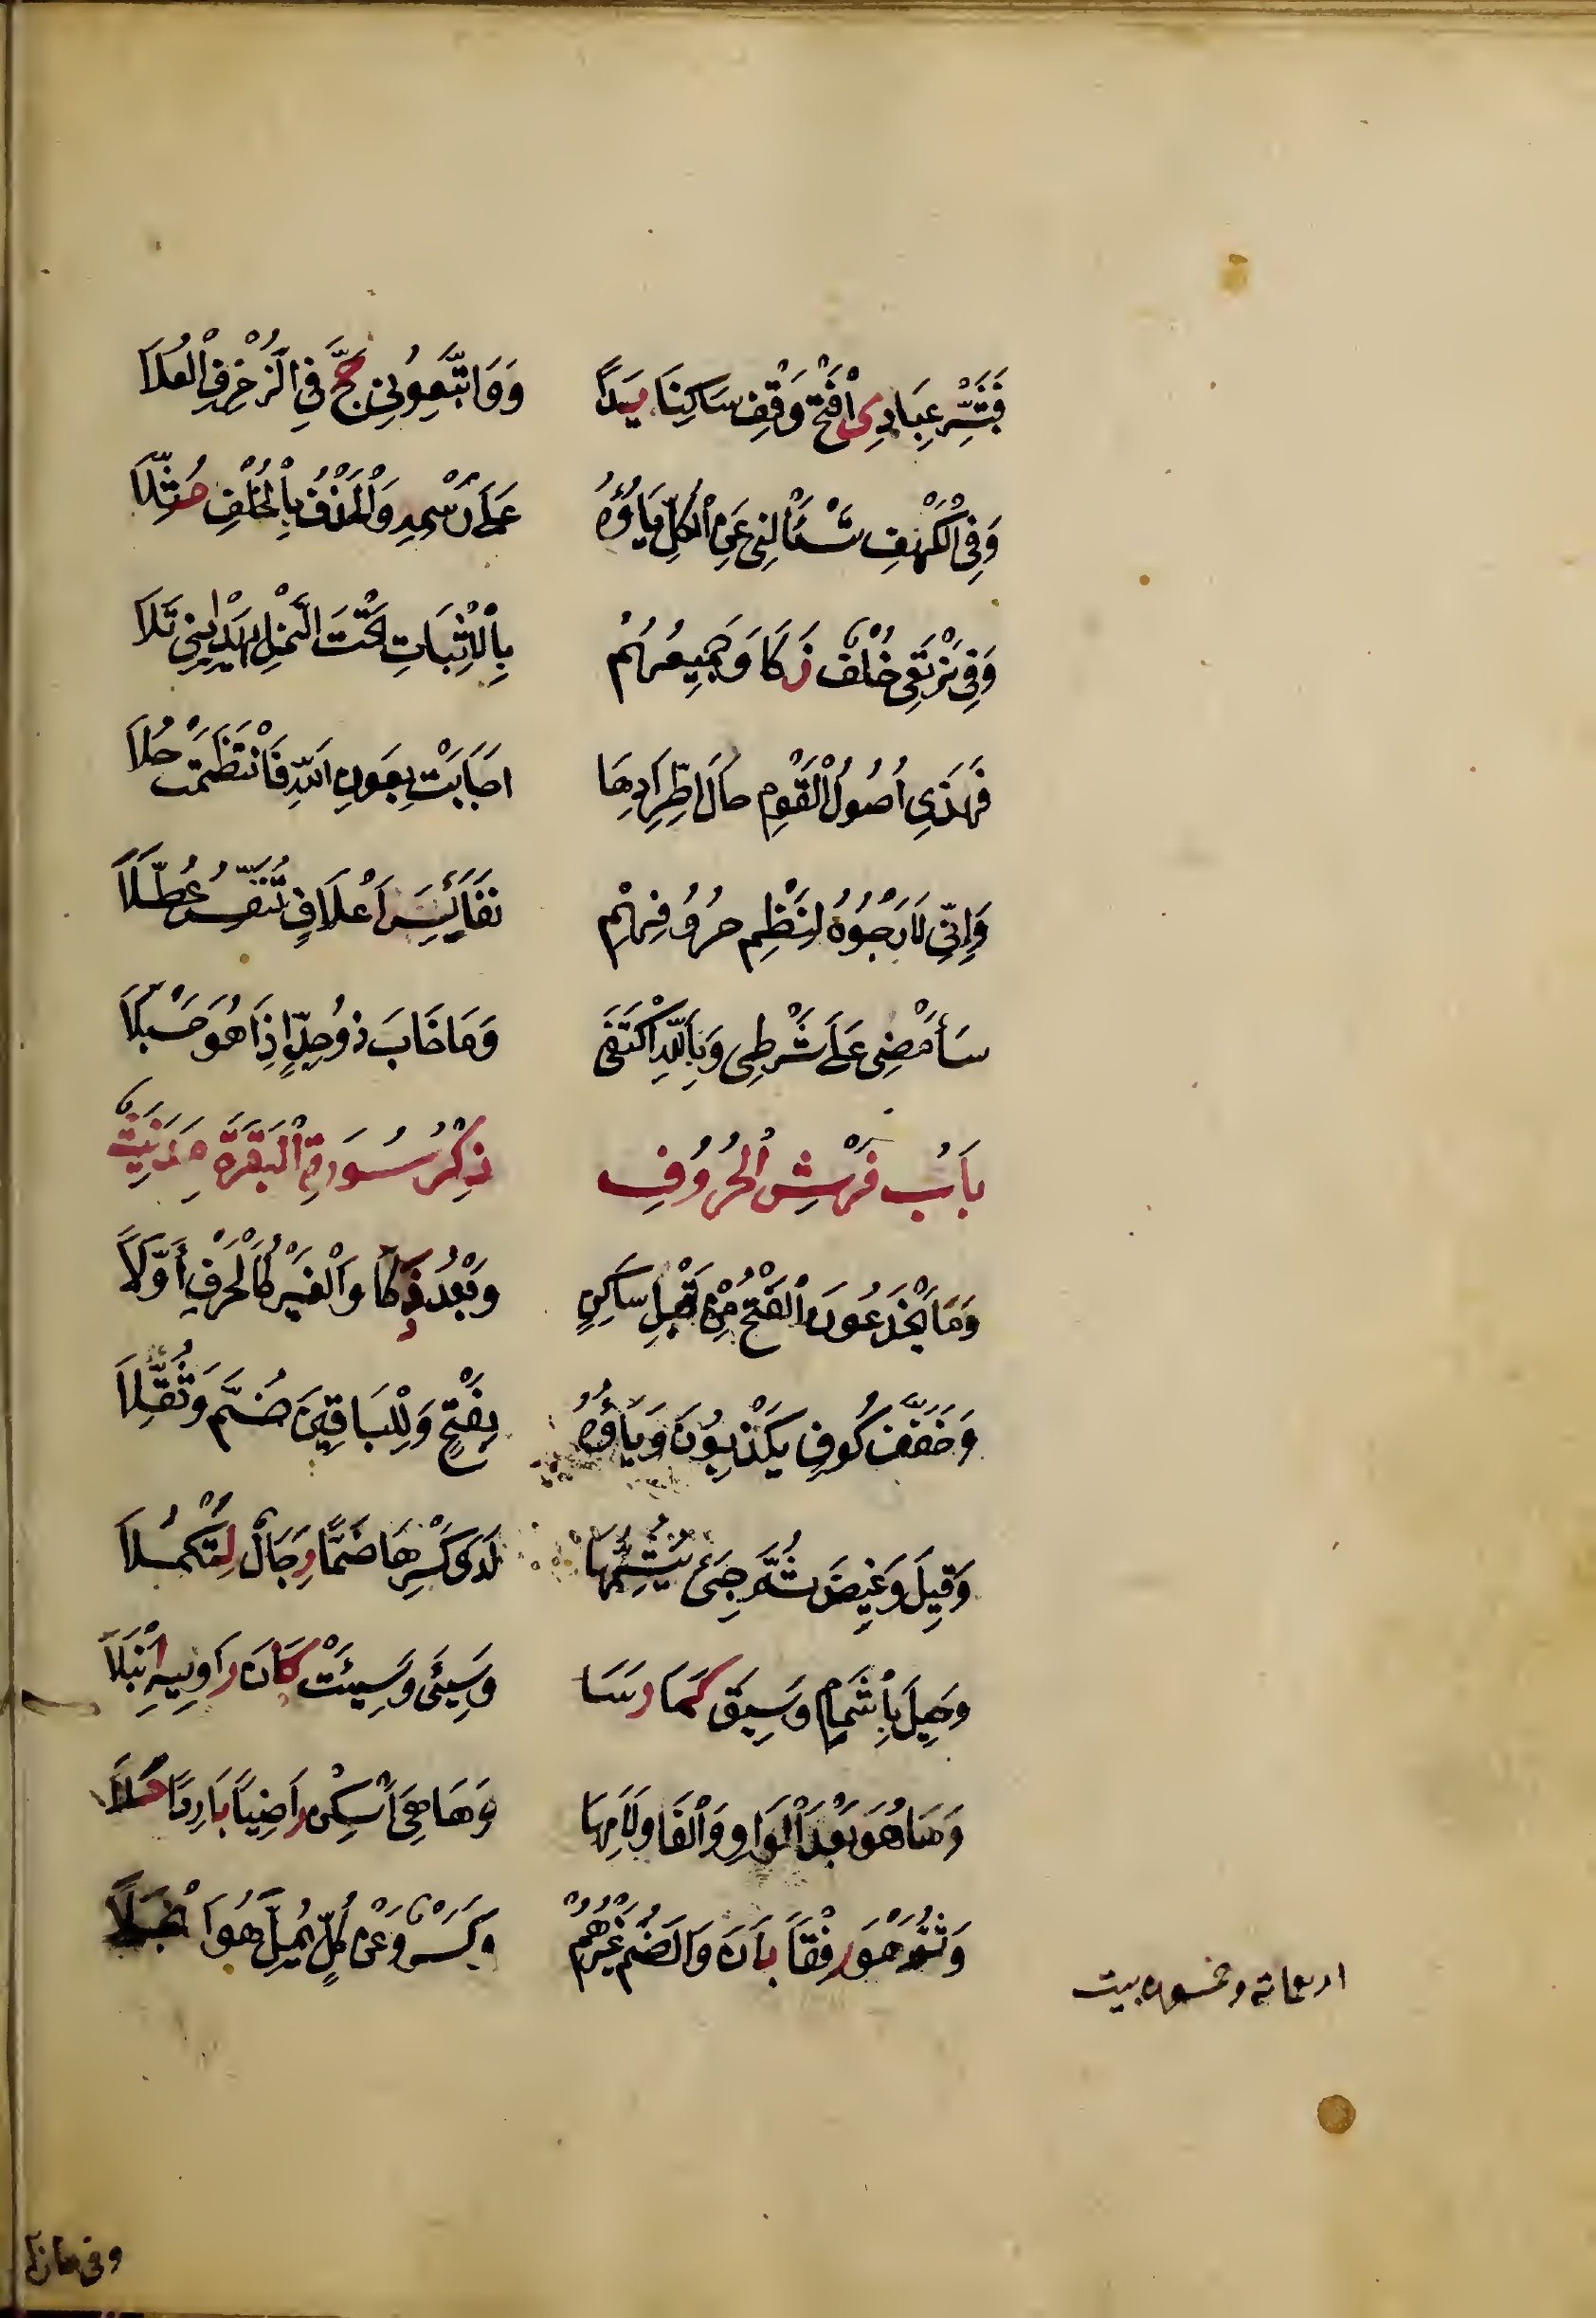 فَبَشِّرْ عِبَادِي افْتَحْ وَقِفْ سَاكِنًا يَدًا وَوَاتَّبِعُونِي حَجَّ فِي الزُّخْرُفِ الْعُلَا
وَفِي الْكَهْفِ تَسْئَالْنِي عَنِ الْكُلِّ يَاؤُهُ عَلَى رَسْمِهِ وَالْحَذْفُ بِالْخُلْفِ مُثِّلَا
وَفِي نَرْتَعِي خُلْفٌ زَكَا وَجَمِيعُهُمْ بِالْاِثْبَاتِ تَحْتَ النَّمْلِ يَهْدِيَنِي تَلَا
فَهَذِي أُصُولُ الْقَوْمِ حَالَ اطِّرَادِهَا اجَابَتْ بِعَوْنِ اللهِ فَانْتَظَمَتْ حُلَا
وَإِنِّي لَارْجُوهُ لِنَظْمِ حُرُوفِهِمْ نَفَائِسَ اَعْلَاقٍ تُنَفِّسُ عُطَّلَا
سَأَمْضِي عَلَى شَرْطِي وَبِاللهِ اكْتَفَى وَمَا خَابَ ذُو جِدٍّ اِذَا هُوَ حَسْبَلَا
بَابُ فَرْشِ الْحُرُوفِ ذِكْرُ سُورَةِ الْبَقَرَةِ مَدَنِيَّةٌ
وَمَا يَخْدَعُونَ الْفَتْحُ مِنْ قَبْلِ سَاكِنٍ وَبَعْدُ ذَكَا وَالْغَيْرُ كَالْحَرْفِ أَوَّلَا
وَخَفَّفَ كُوفٍ يَكْذِبُونَ وَيَاؤُهُ بِفَتْحٍ وَلِلْبَاقِينَ ضُمَّ وَثُقِّلَا
وَقِيلَ وَغِيضَ ثُمَّ جِيءَ يُشِمُّهَا لَدَى كَسْرِهَا ضَمًّا رِجَالٌ لِتَكْمُلَا
وَحِيلَ بِاِشْمَامٍ وَسِيقَ كَمَا رَسَا وَسِيءَ وَسِيئَتْ كَانَ رَاوِيهِ اَنْبَلَا
وَهَا هُوَ بَعْدَ الْوَاوِ وَالْفَا وَلَامِهَا وَهَا هِيَ اَسْكِنْ رَاضِيًا بَارِدًا حَلَا
وَثُمَّ هُوَ رِفْقًا بَانَ وَالضَّمُّ غَيْرُهُمْ وَكَسْرٌ وَعَنْ كُلٍّ يُمِلَّ هُوَ انْجَلَا
اربعمائة وخمسون بيت